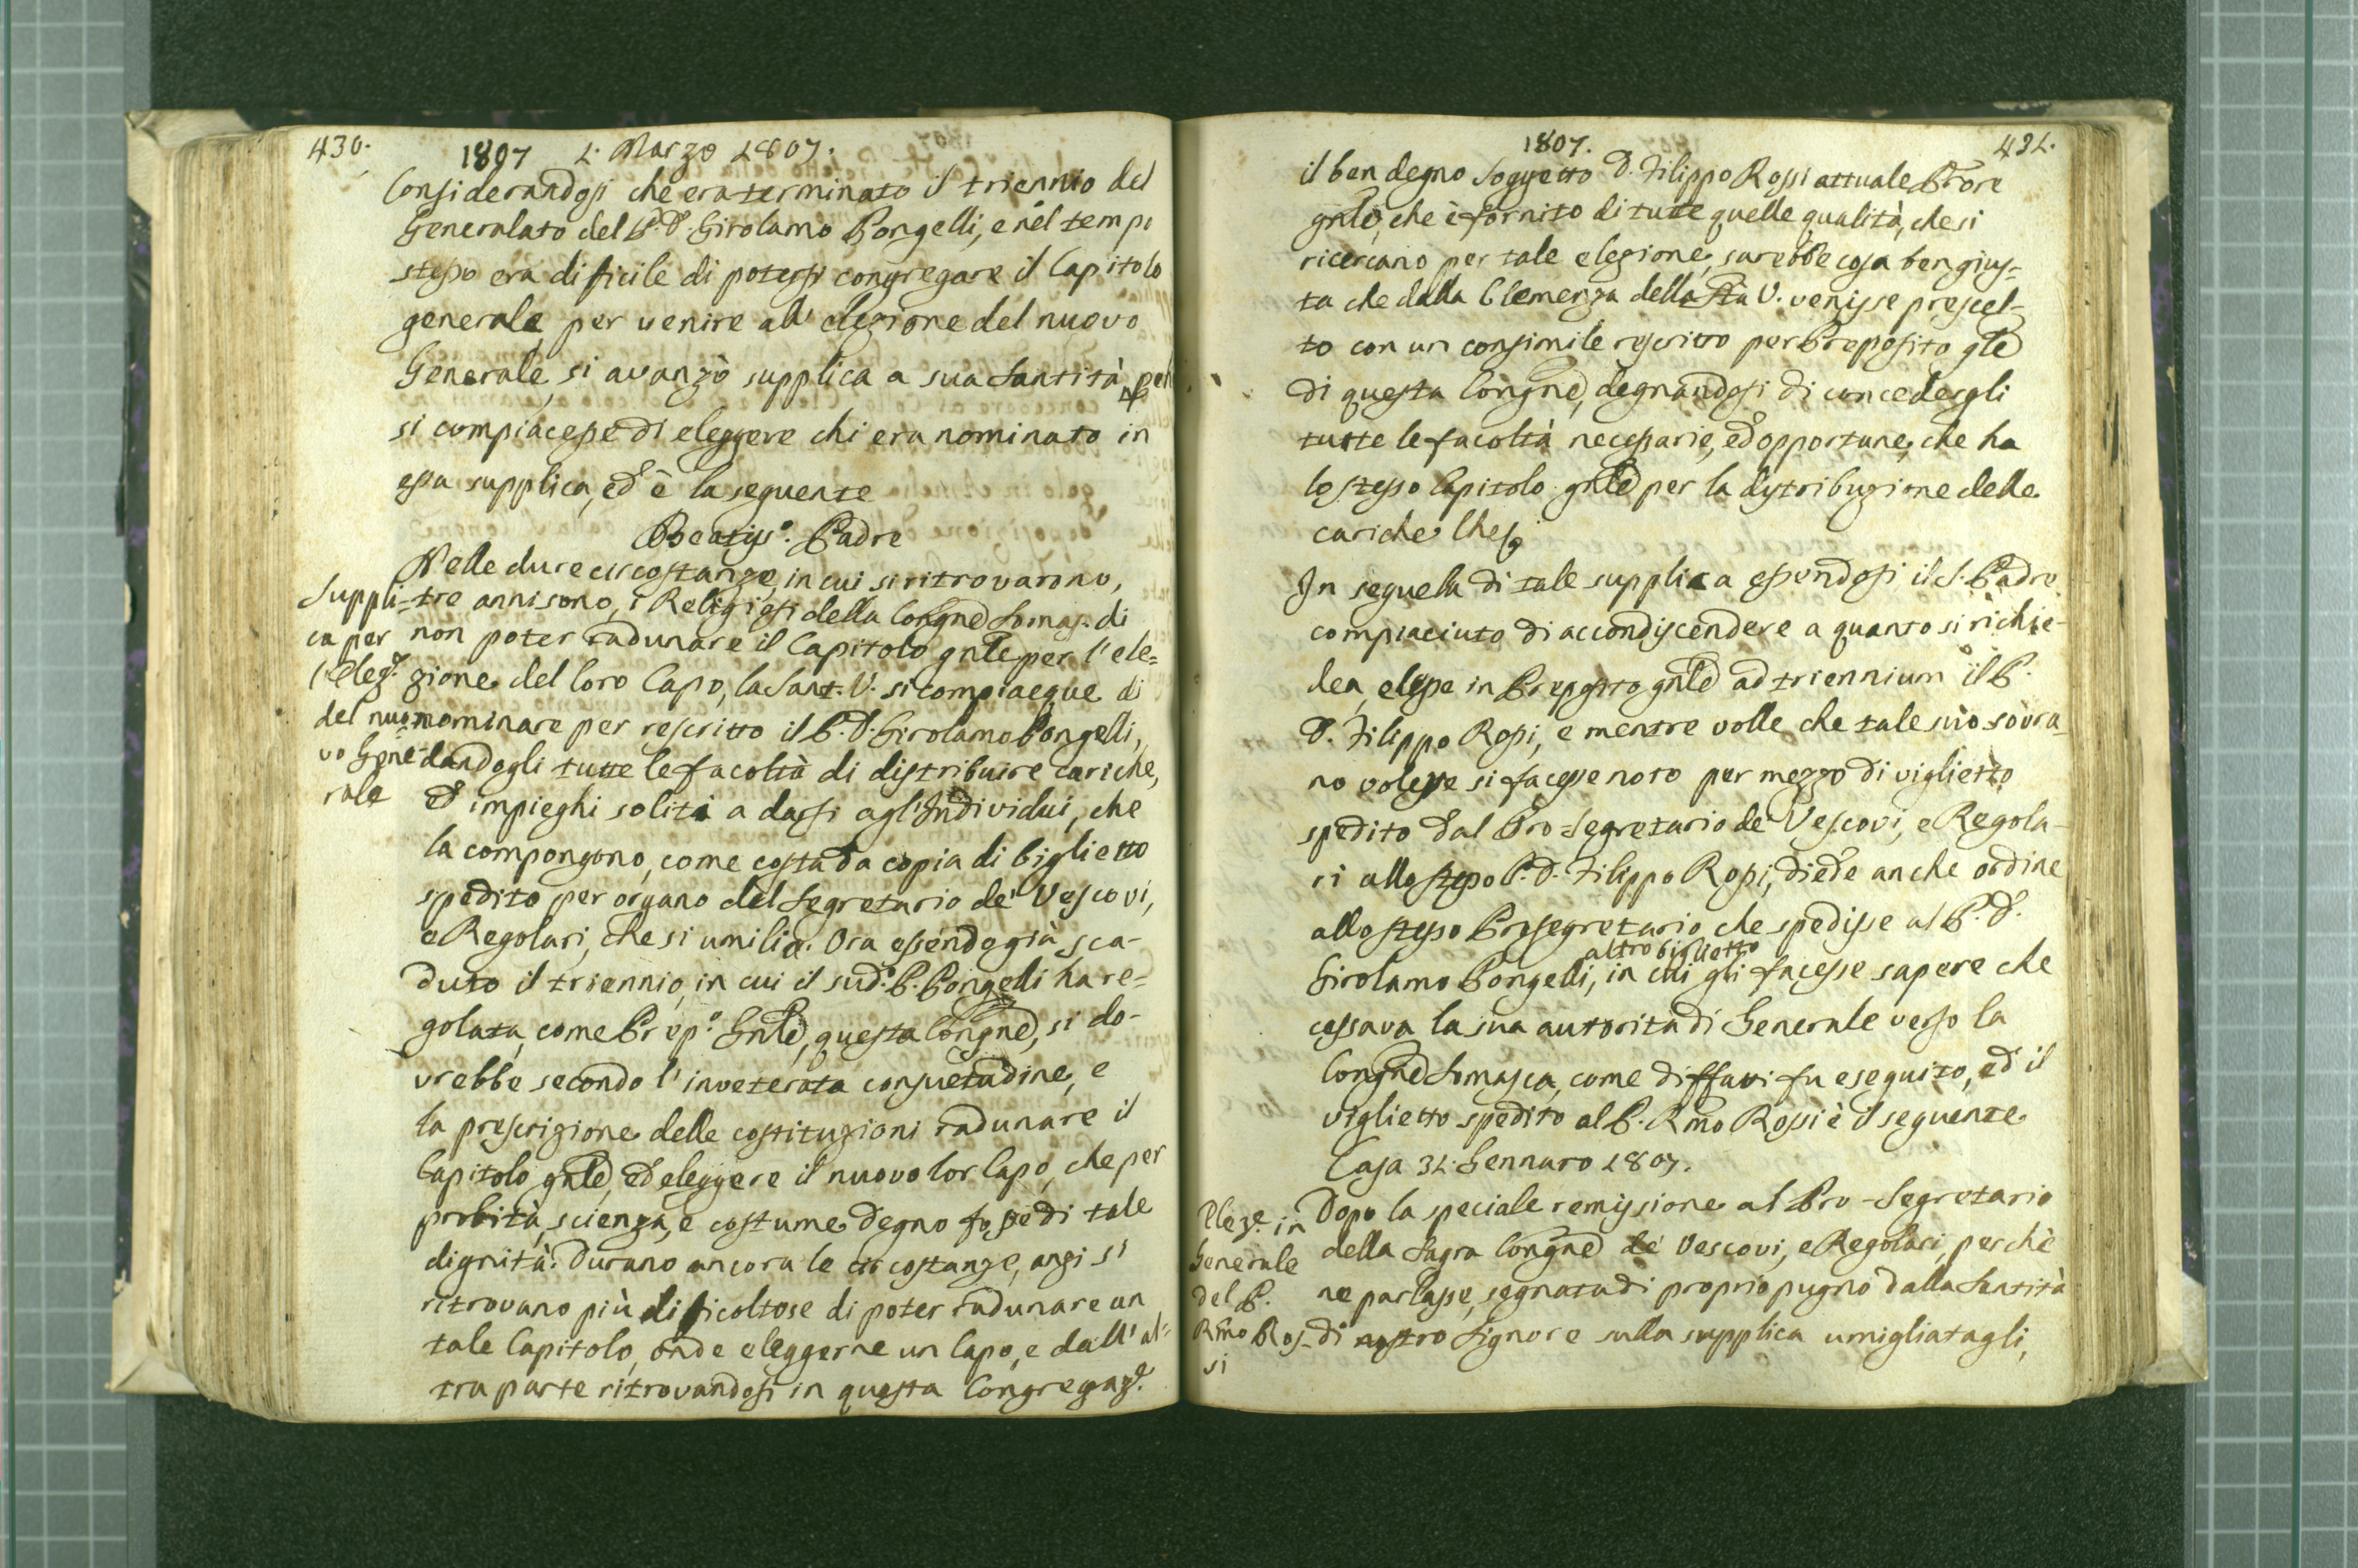 430.
1807 1. Marzo 1807.
Considerandosi che era terminato il triennio del
Generalato del P. D. Girolamo Pongelli, e nel tempo
stesso era dificile di potersi congregare il Capitolo
generale per venire all' elezione del nuovo
Generale, si avanzò supplica a sua Santità
si compiacesse di eleggere chi era nominato in
essa supplica, ed è la seguente
Beatiss.º Padre
Suppli=
ca per
l'Elez.e
del nuo=
vo Gene=
rale
Nelle dure circostanze, in cui si ritrovarono,
tre anni sono, i Religiosi della Congne Somas. di
non poter radunare il Capitolo gnle per l' ele=
zione del loro Capo, la Sant. V. si compiacque di
nominare per rescritto il P. D. Girolamo Pongelli,
dandogli tutte le facoltà di distribuire cariche,
ed impieghi soliti a darsi agl' Individui, che
la compongono, come costa da copia di biglietto
spedito per organo del Segretario de' Vescovi,
e Regolari, che si umilia. Ora essendo già sca-
duto il triennio, in cui il sud.º P. Pongelli ha re=
golata, come Prep.º Gnle, questa Congne, si do-
vrebbe secondo l' inveterata consuetudine, e
la prescrizione delle costituzioni radunare il
Capitolo gnle, ed eleggere il nuovo lor Capo, che per
probità, scienza, e costume degno fosse di tale
dignità. Durano ancora le circostanze, anzi si
ritrovano più dificoltose di poter radunare un
tale Capitolo, onde eleggerne un Capo, e dall' al=
tra parte ritrovandosi in questa Congregaz.e
1807. 431.
il ben degno Soggetto D. Filippo Rossi attuale Prore
gnle, che è fornito di tutte quelle qualità, che si
ricercano per tale elezione, sarebbe cosa ben gius=
ta che dalla Clemenza della Sta V. venisse prescel-
to con un consimile rescritto per Preposito gle
di questa Congne, degnandosi di concedergli
tutte le facoltà necessarie, ed opportune, che ha
lo stesso Capitolo gnle per la distribuzione delle
cariche Che
In sequela di tale supplica essendosi il S. Padre
compiaciuto di accondiscendere a quanto si richie-
dea, elesse in Preposito gnle ad triennium il P.
D. Filippo Rossi, e mentre volle che tale suo sovra
no volere si facesse noto per mezzo di viglietto
spedito dal Pro-Segretario de' Vescovi, e Regola-
ri allo stesso P. D. Filippo Rossi, diede anche ordine
allo stesso Prosegretario che spedisse al P. D.
altro biglietto
Girolamo Pongelli, in cui gli facesse sapere che
cessava la sua autorita di Generale verso la
Congne Somasca, come diffatti fu eseguito, ed il
viglietto spedito al P. Rmo Rossi è il seguente
Casa 31. Gennaro 1807.
Eleze in
Generale
del P.
Rmo Ros-
si
Dopo la speciale remissione al Pro-Segretario
della Sagra Congne de' Vescovi, e Regolari, perchè
ne parlasse, segnata di proprio pugno dalla Santità
di nostro Signore sulla supplica umigliatagli,